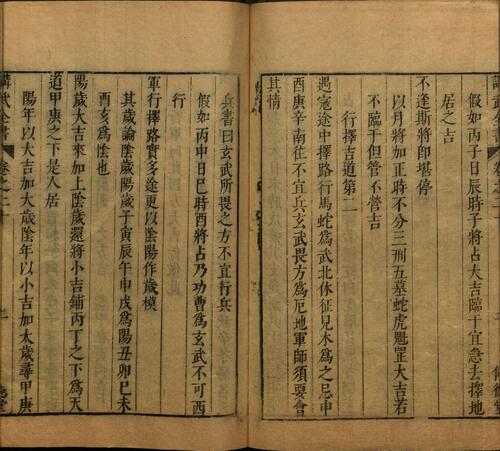 假如丙子日辰時子將占大吉臨干宜急去擇地
居之吉
不逢斯將即堪停
以月將加正時不分三刑五墓蛇虎魁罡大吉若
不臨干但管不營吉
行擇吉道第二
遇寇途中擇路行馬蛇為武北休征見木為之忌申
酉庚辛南往不宜兵玄武畏方為厄地軍師須要會
其情
兵書曰玄武所畏之方不宜行兵
假如丙申日巳時酉將占乃功曹為玄武不可西
行
軍行擇路實多途更以陰陽作歲模
其歲論陰歲陽歲子寅辰午申戌為陽丑卯巳未
酉亥為陰也
陽歲大吉來加上陰歲還將小吉鋪丙丁之下為天
道甲庚之下是人居
陽年以大吉加太歲陰年以小吉加太歲尋甲庚
講武全書 卷之二十